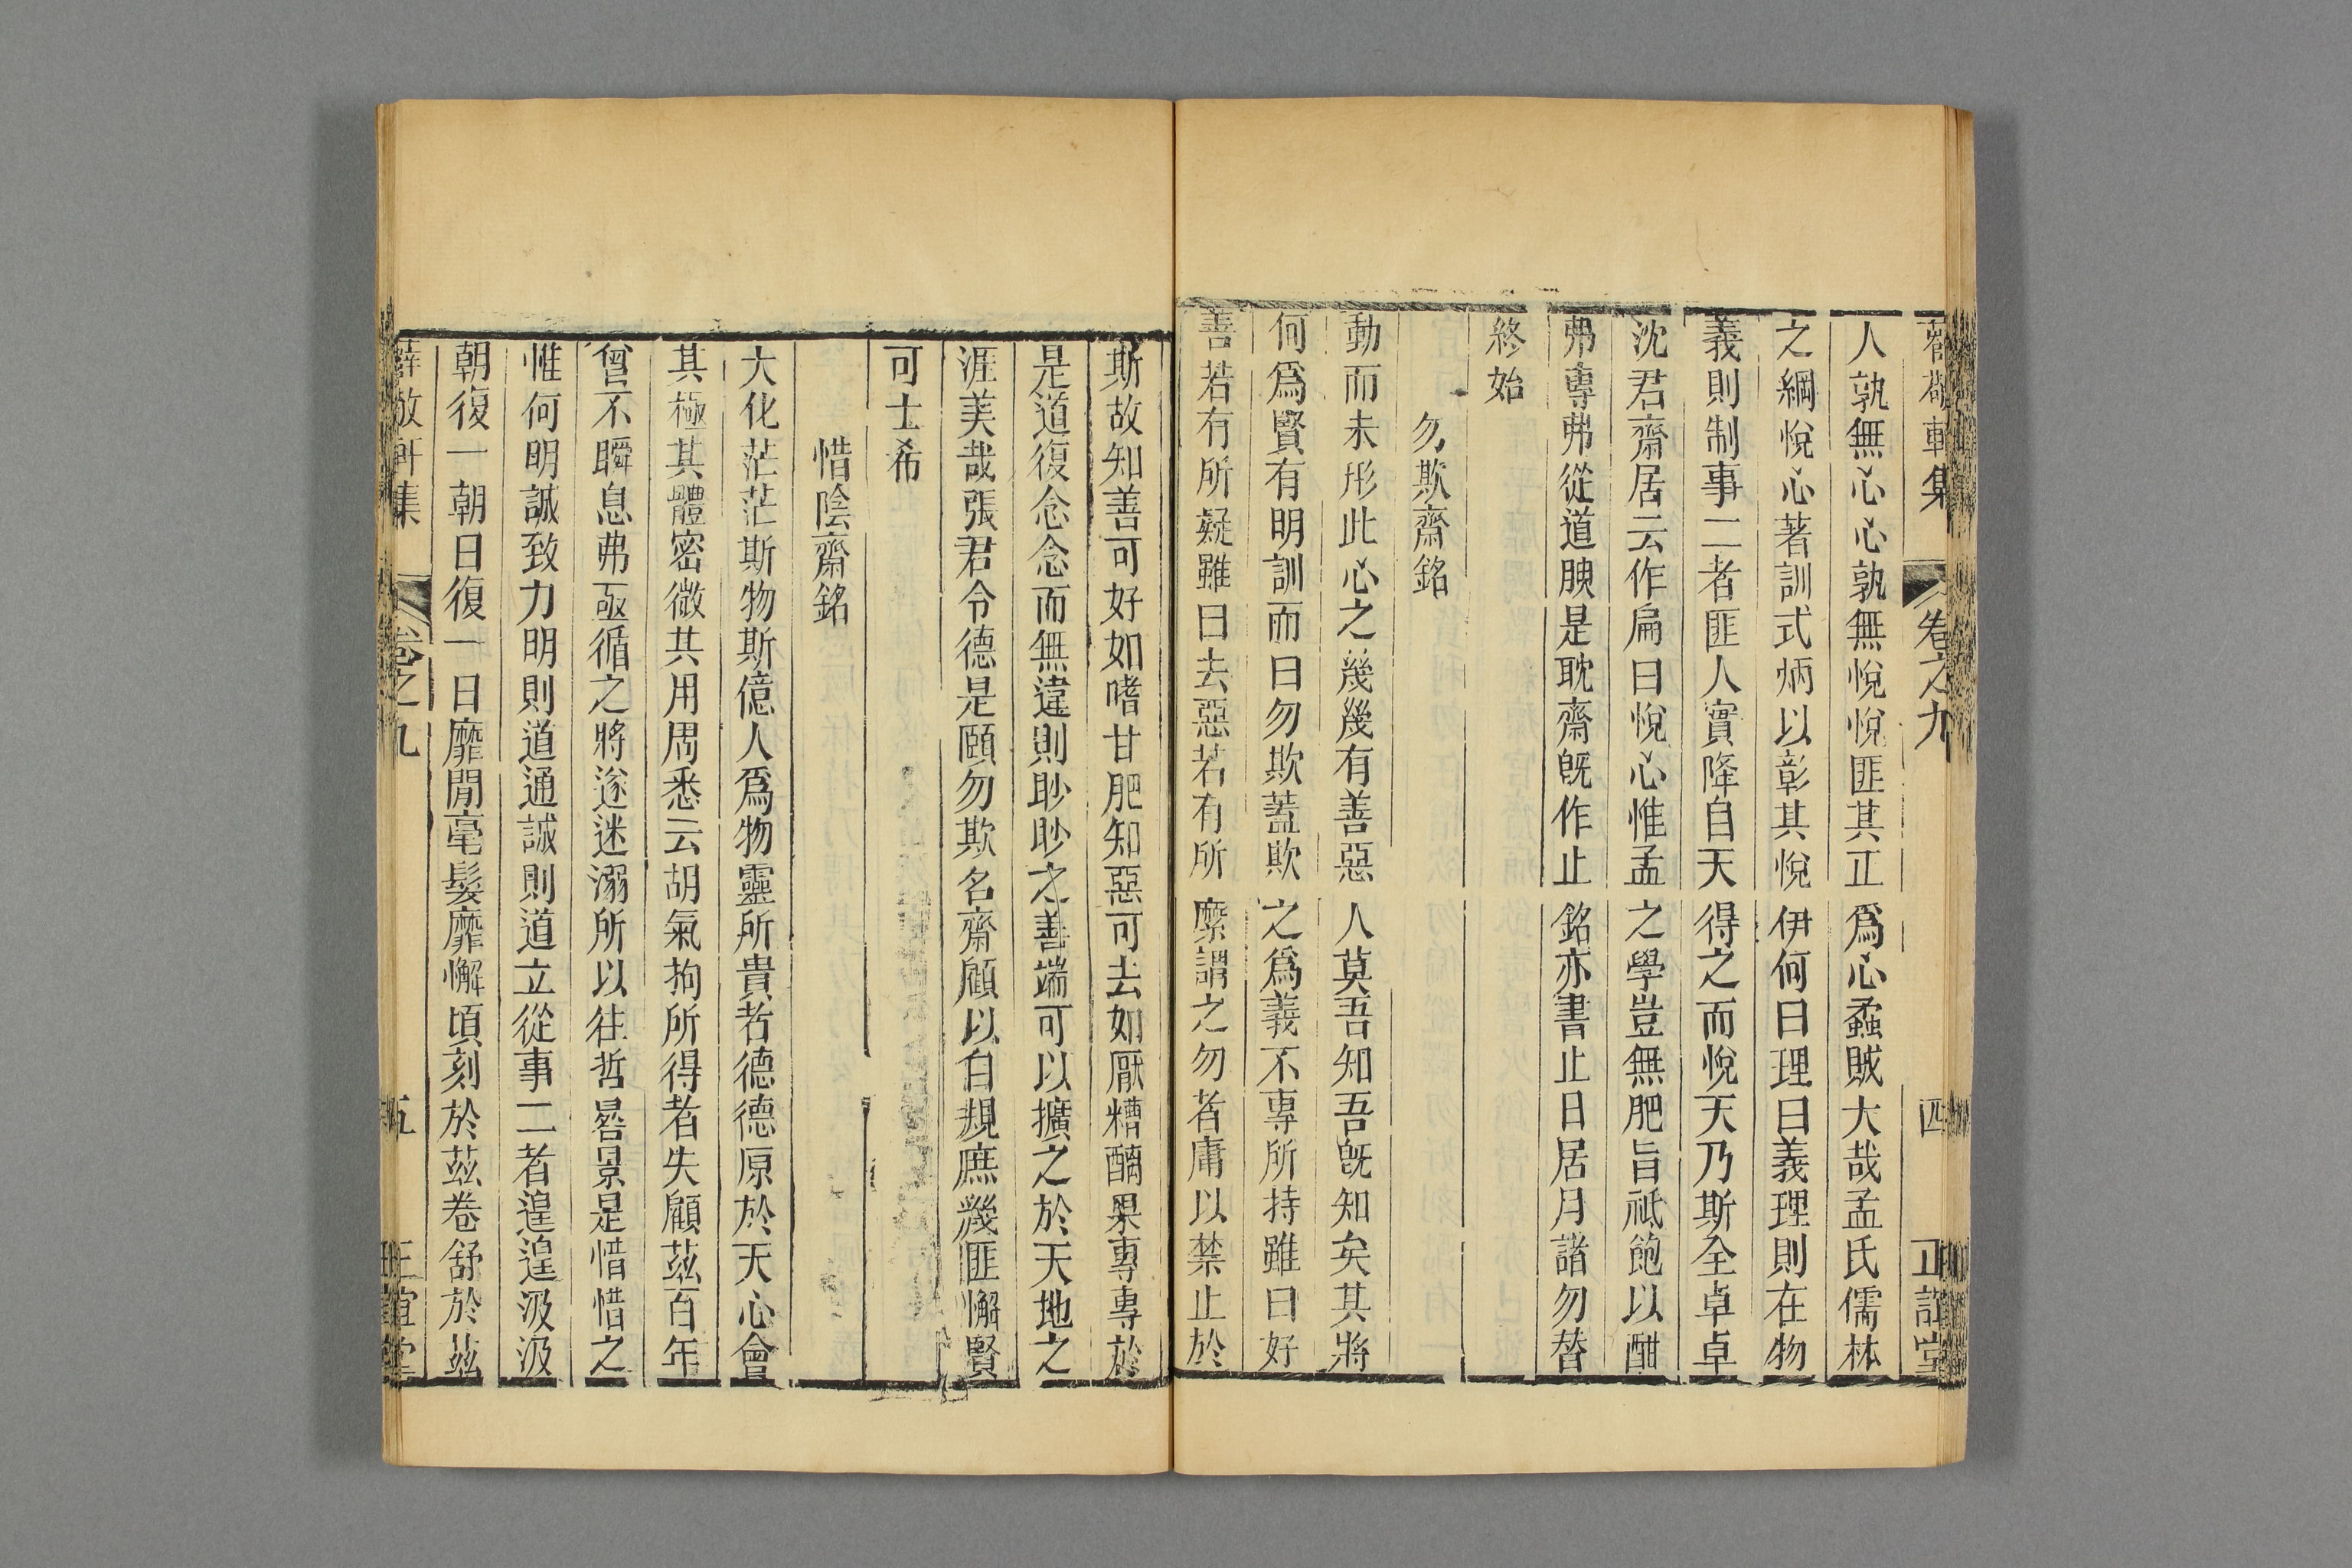 薛敬軒集 卷之九 四 正誼堂
人孰無心心孰無悅悅匪其正爲心蟊賊大哉孟氏儒林
之綱悅心著訓式炳以彰其悅伊何曰理曰義理則在物
義則制事二者匪人實降自天得之而悅天乃斯全卓卓
沈君齋居云作扁曰悅心惟孟之學豈無肥旨祗飽以酣
弗專弗從道腴是耽齋旣作止銘亦書止日居月諸勿替
終始
勿欺齋銘
動而未形此心之幾幾有善惡人莫吾知吾旣知矣其將
何爲賢有明訓而曰勿欺蓋欺之爲義不專所持雖曰好
善若有所疑雖曰去惡若有所縻謂之勿者庸以禁止於
斯故知善可好如嗜甘肥知惡可去如厭糟醨果專專於
是道復念念而無違則眇眇之善端可以擴之於天地之
涯美哉張君令德是頤勿欺名齋顧以自規庶幾匪懈賢
可士希
惜陰齋銘
大化茫茫斯物斯億人爲物靈所貴者德德原於天心會
其極其體密微其用周悉云胡氣拘所得者失顧茲百年
曾不瞬息弗亟循之將遂迷溺所以往哲晷景是惜惜之
惟何明誠致力明則道通誠則道立從事二者遑遑汲汲
朝復一朝日復一日靡閒毫髮靡懈頃刻於茲卷舒於茲
薛敬軒集 卷之九 五 正誼堂